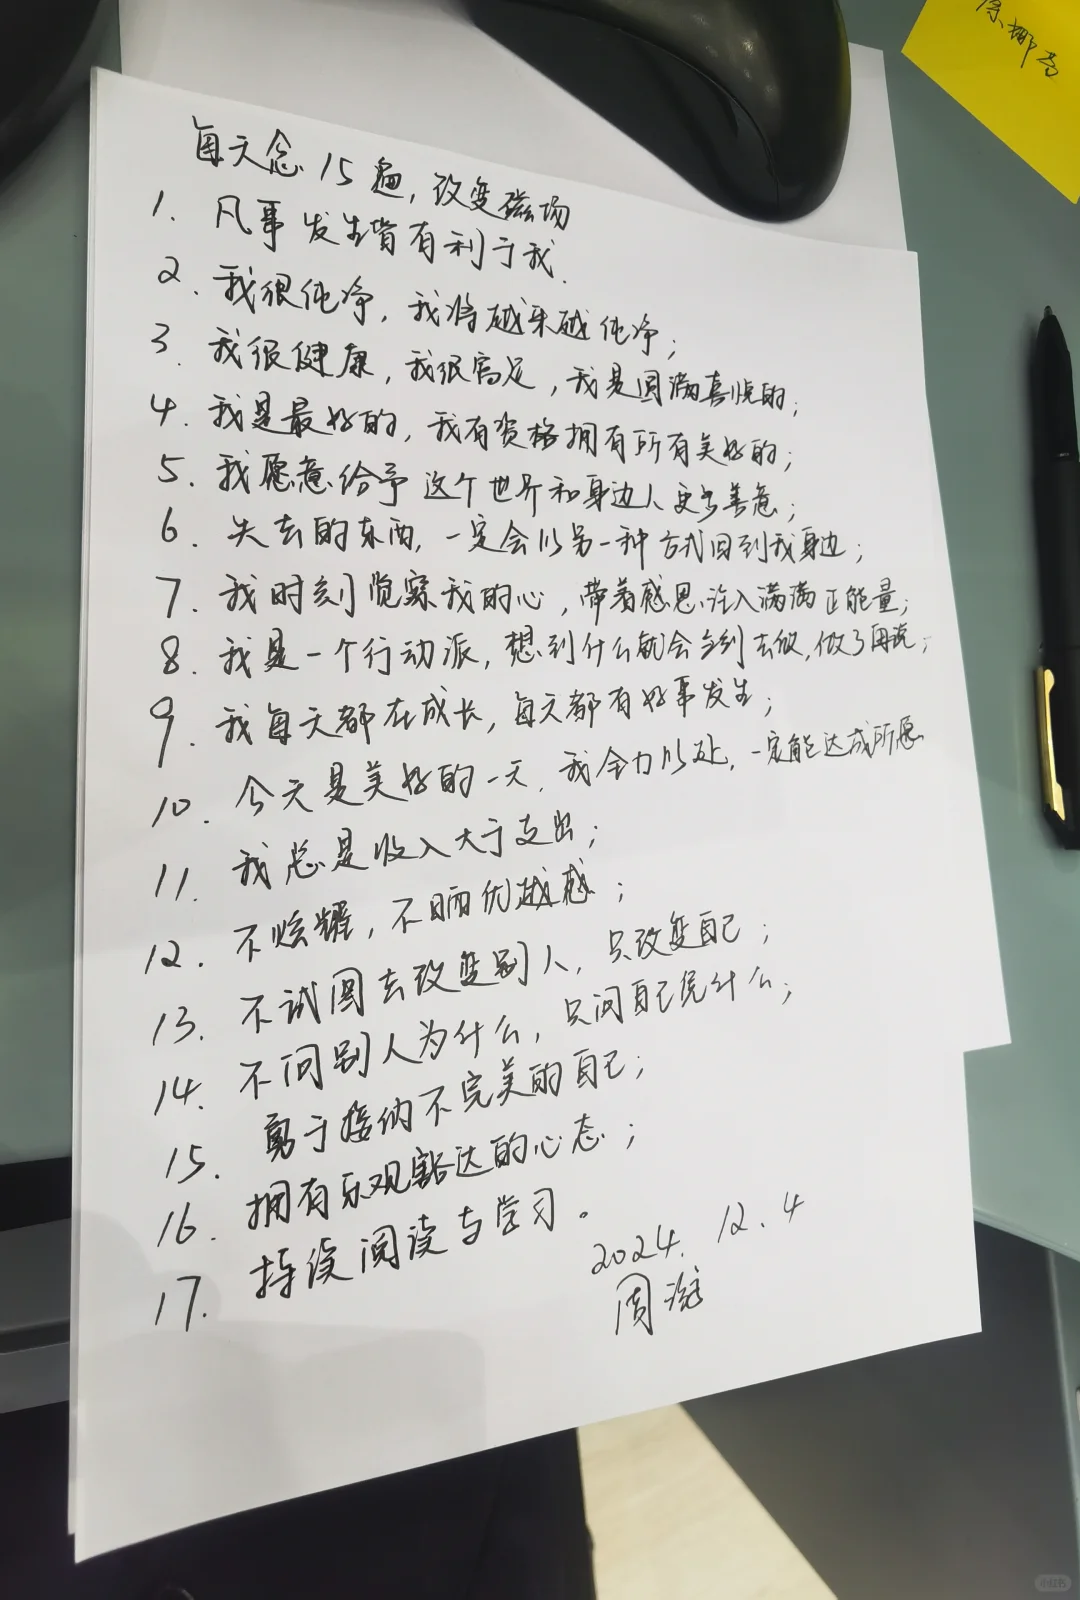 每天念15遍，改变磁场
1. 凡事发生皆有利于我.
2. 我很纯净，我将越来越纯净；
3. 我很健康，我很富足，我是圆满喜悦的；
4. 我是最好的，我有资格拥有所有美好的；
5. 我愿意给予这个世界和身边人更多善意；
6. 失去的东西，一定会以另一种方式回到我身边；
7. 我时刻觉察我的心，带着感恩，注入满满正能量；
8. 我是一个行动派，想到什么就会立刻去做，做了再说；
9. 我每天都在成长，每天都有好事发生；
10. 今天是美好的一天，我全力以赴，一定能达成所愿
11. 我总是收入大于支出；
12. 不炫耀，不晒优越感；
13. 不试图去改变别人，只改变自己；
14. 不问别人为什么，只问自己凭什么；
15. 勇于接纳不完美的自己；
16. 拥有乐观豁达的心态；
17. 持续阅读与学习。
2024. 12. 4
周
小红书